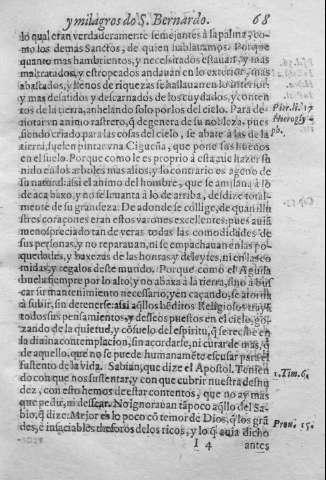 y milagros do S. Bernardo. 68
lo qual eran verdaderamente semejantes à la palma, co-
mo los demas Sanctos, de quien hablauamos. Porque
quanto mas hambrientos, y necessitados estauan, y mas
maltratados, y estropeados andauan en lo exterior, mas
abastados, y llenos de riquezas se hallauan en lo interior,
y mas desasidos y descarnados de los cuydados, y conten
tos de la tierra, anhelando solo por los del cielo. Para de-
notar vn animo rastrero, q̃ degenera de su nobleza, pues
siendo criado para las cosas del cielo, se abate à las de la
tierra, suelen pintar vna Cigueña, que pone sus hueuos
en el suelo. Porque como le es proprio à esta aue hazer su
nido en los arboles mas altos, y lo contrario es ageno de
su natural: assi el animo del hombre, que se amplan, à lo
de aca baxo, y no se leuanta à lo de arriba, desdize total-
mente de su grandeza. De adonde se collige, de quan illu
stres coraçones eran estos varones excellentes: pues assi
menospreciado tan de veras todas las comodidades de
sus personas, y no reparauan, ni se empachauan en las po-
quedades, y baxezas de las honras y deleytes, ni en las co
midas, y regalos deste mundo. Porque como el Aguila
buela siempre por lo alto, y no abaxa à la tierra, sino à bus
car su mantenimiento necessario, y en caçando, se
à subir, sin detenerse: assi aq̃llos bẽditos Religiosos
todos sus pensamientos, y desseos puestos en el cielo, go-
zando de la quietud, y cõsuelo del espiritu, q̃ se recibe en
la diuina contemplacion, sin acordarse, ni curar de mas, q̃
de aquello, que no se puede humanamẽte escusar para el
sustento de la vida. Sabian, que dize el Apostol. Tenien
do con que nos sustentar, y con que cubrir nuestra desnu
dez, con esto hemos de estar contentos, que no ay mas
que pedir, ni dessear. No ignorauan tãpoco aq̃llo del Sa-
bio, q̃ dize: Mejor es lo poco cõ temor de Dios, q̃ los grã
des, è insaciables thesoros de los ricos, y lo q̃ auia dicho
I 4 antes
Pier. li. 17
hierogly
ph.
1. Tim. 6.
Prou. 15.